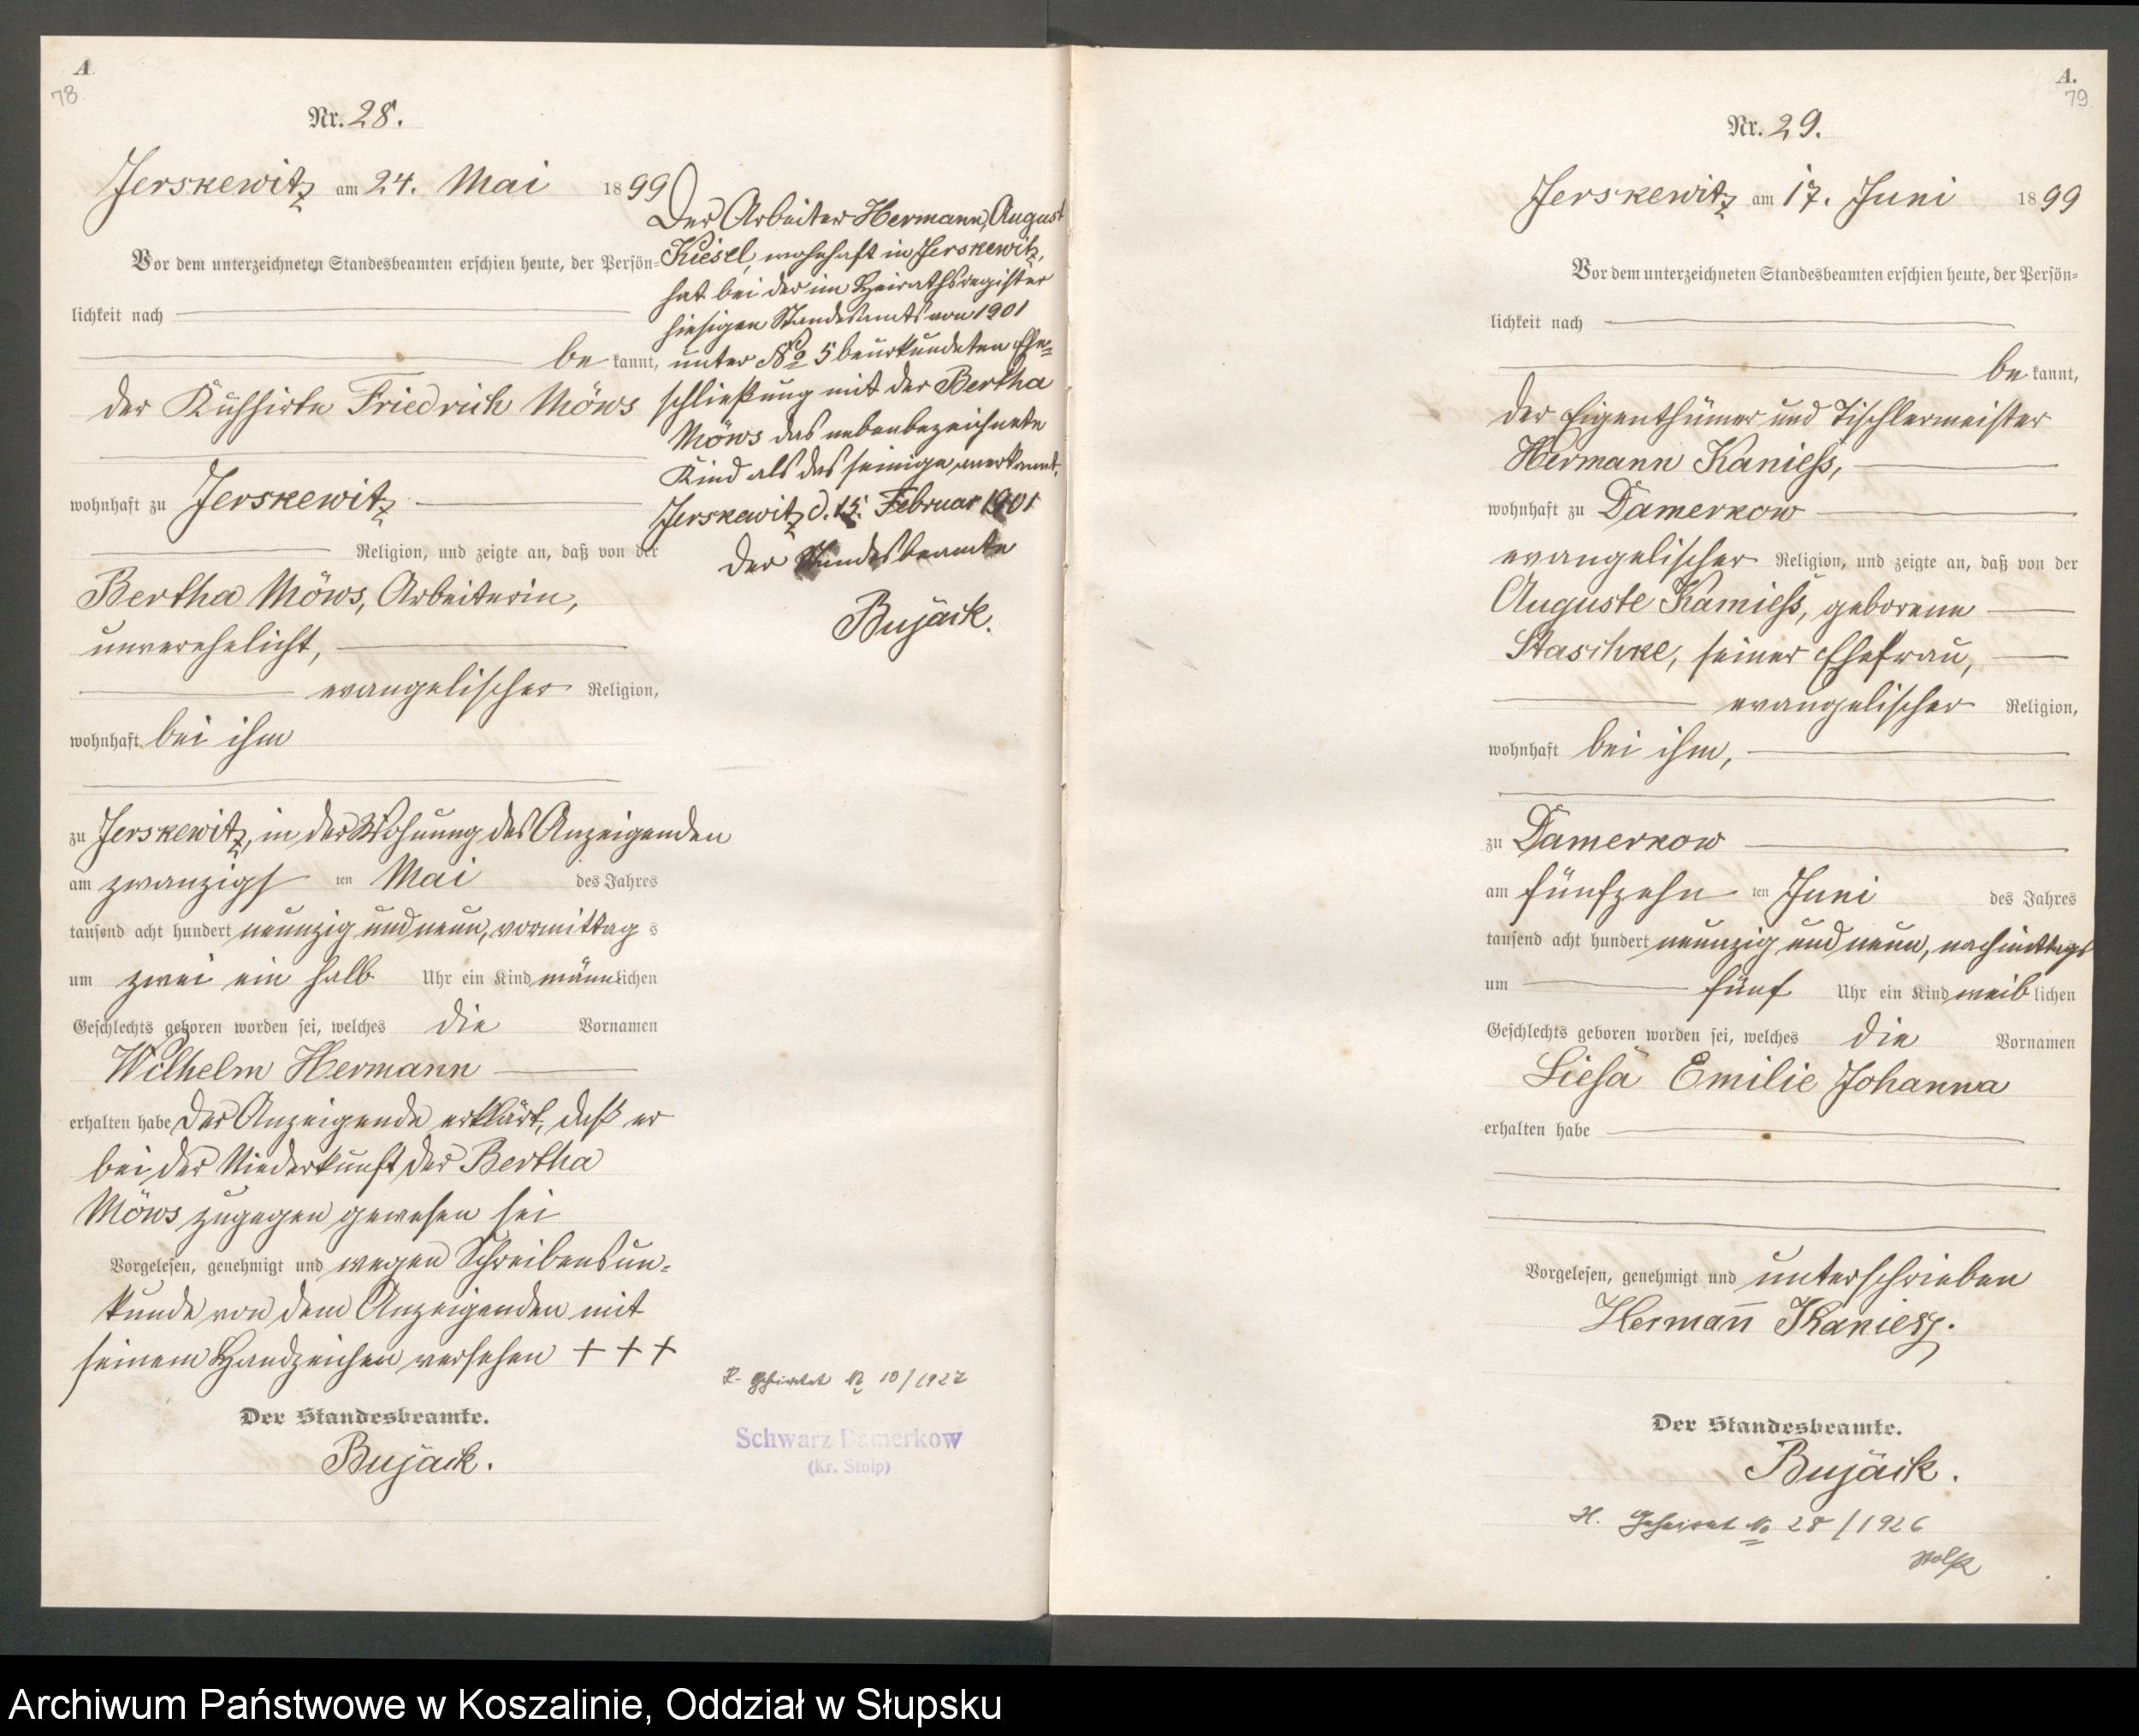 A
78
Nr. 28.
Jerskewitz am 24. Mai 1899
Vor dem unterzeichneten Standesbeamten erschien heute, der Persön-
lichkeit nach
be kannt,
der Kuhhirte Friedrich Möws
wohnhaft zu Jerskewitz
Religion, und zeigte an, daß von der
Bertha Möws, Arbeiterin,
unverehelicht,
evangelischer Religion,
wohnhaft bei ihm
zu Jerskewitz, in der Wohnung des Anzeigenden
am zwanzigs ten Mai des Jahres
tausend acht hundert neunzig und neun, vormittag s
um zwei ein halb Uhr ein Kind männlichen
Geschlechts geboren worden sei, welches die Vornamen
Wilhelm Hermann
erhalten habe Der Anzeigende erklärt, daß er
bei der Niederkunft der Bertha
Möws zugegen gewesen sei
Vorgelesen, genehmigt und wegen Schreibensun-
kunde von dem Anzeigenden mit
seinem Handzeichen versehen + + +
Der Standesbeamte.
Bujäck.
Der Arbeiter Hermann, August
Kiesel, wohnhaft in Jerskewitz,
hat bei der im Heirathsregister
hiesigen Standesamts von 1901
unter No 5 beurkundeten Ehe-
schließung mit der Bertha
Möws das nebenbezeichnete
Kind als das seinige anerkannt.
Jerskewitz d. 15. Februar 1901
Der Standesbeamte
Bujäck.
Geheiratet No 10/1927
Schwarz Damerkow
(Kr. Stolp)
A.
79
Nr. 29.
Jerskewitz am 17. Juni 1899
Vor dem unterzeichneten Standesbeamten erschien heute, der Persön-
lichkeit nach
be kannt,
der Eigenthümer und Tischlermeister
Hermann Kaniess,
wohnhaft zu Damerkow
evangelischer Religion, und zeigte an, daß von der
Auguste Kamiess, geborene
Staschke, seiner Ehefrau,
evangelischer Religion,
wohnhaft bei ihm,
zu Damerkow
am fünfzehn ten Juni des Jahres
tausend acht hundert neunzig und neun, nachmittags
um fünf Uhr ein Kind weib lichen
Geschlechts geboren worden sei, welches die Vornamen
Liesa Emilie Johanna
erhalten habe
Vorgelesen, genehmigt und unterschrieben
Hermann Kaniess.
Der Standesbeamte.
Bujäck.
H. Geheirat No 28/1926
Stolp
Archiwum Państwowe w Koszalinie, Oddział w Słupsku